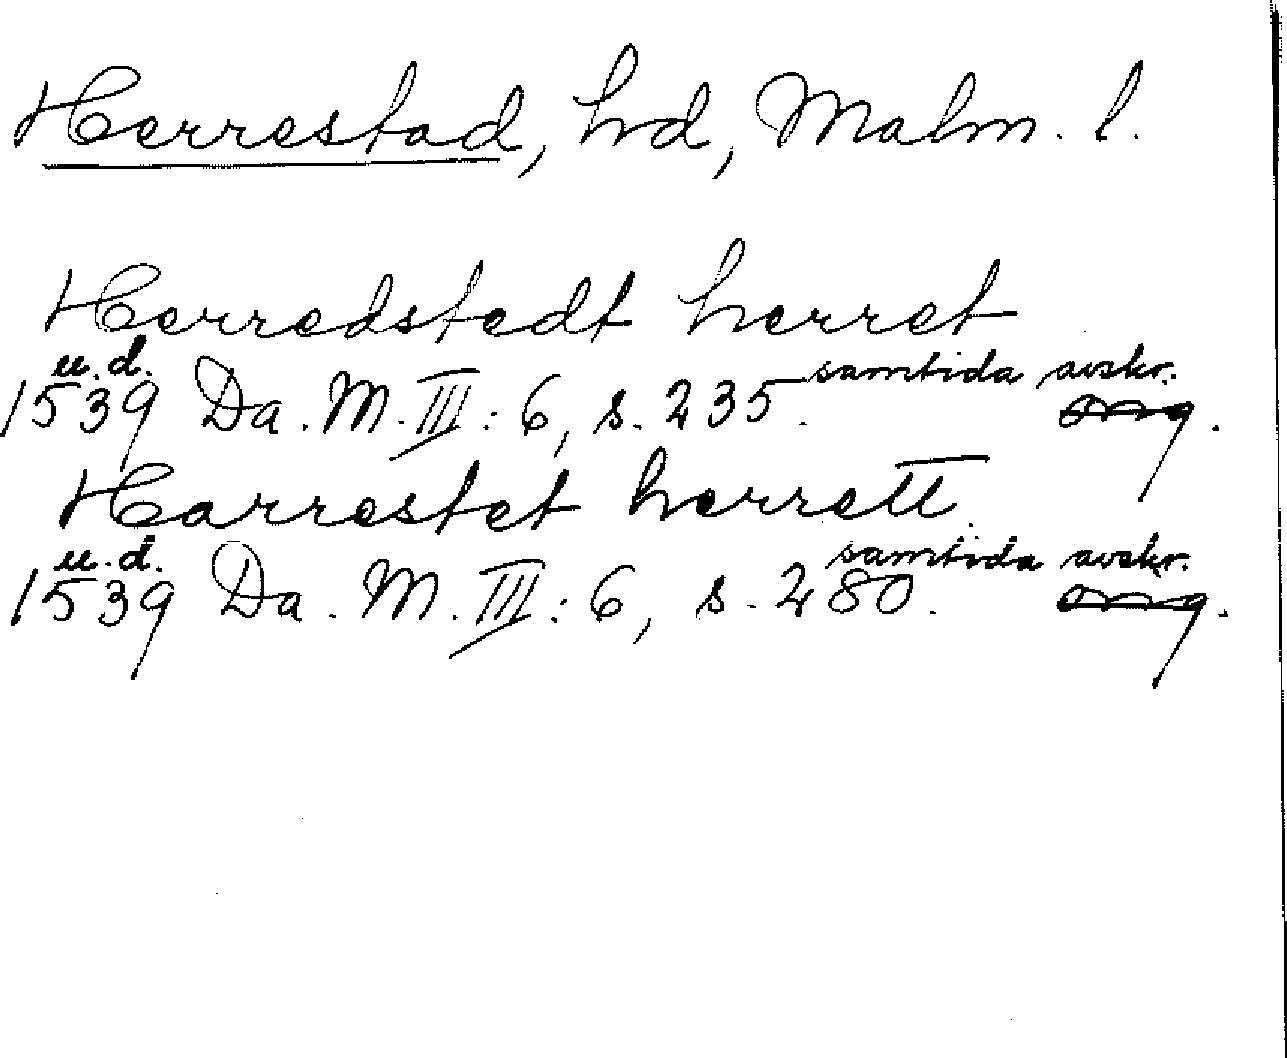 Herrestad, hd, Malm. l.
Herredstedt herret
u.d. samtida avskr.
1539 Da. M. III: 6, s. 235. org.
Harrestet herrett.
u.d. samtida avskr.
1539 Da. M. III: 6, s. 280. org.